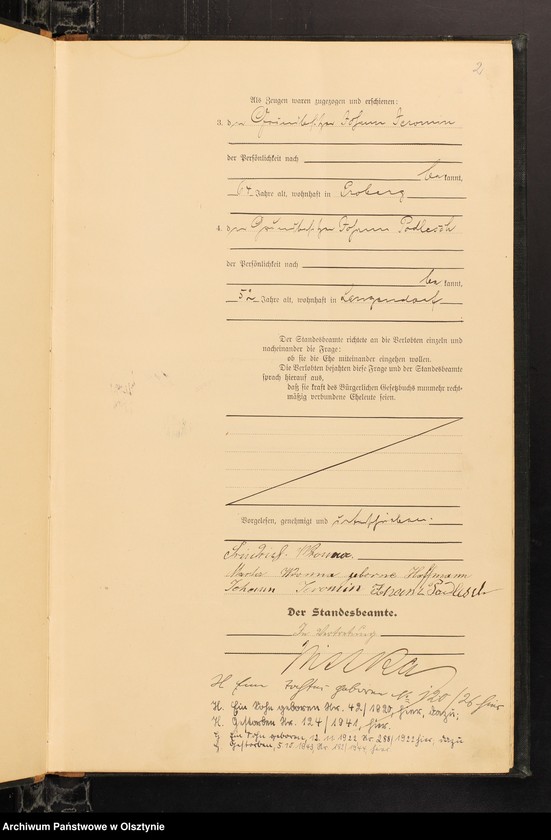 2
Als Zeugen waren zugezogen und erschienen:
3. der Grundbesitzer Johann Jeromin
der Persönlichkeit nach
be kannt,
Jahre alt, wohnhaft in Groberg
4. der Grundbesitzer Johann Podlesch
der Persönlichkeit nach
be kannt,
52 Jahre alt, wohnhaft in Langendorf
Der Standesbeamte richtete an die Verlobten einzeln und
nacheinander die Frage:
ob sie die Ehe miteinander eingehen wollen.
Die Verlobten bejahten diese Frage und der Standesbeamte
sprach hierauf aus,
daß sie kraft des Bürgerlichen Gesetzbuchs nunmehr recht-
mäßig verbundene Eheleute seien.
Vorgelesen, genehmigt und unterschrieben.
Friedrich Wonna.
Marta Wonna geborne Hoffmann
Johann Jeromin Johann Podlesch
Der Standesbeamte.
In Vertretung
H. Eine Tochter geboren No 120/26 hier
H. Ein Sohn geboren Nr. 42/1920, hier, dazu;
H. Gestorben Nr. 124/1941, hier.
Ein Sohn geboren, 12.11.1922 Nr. 288/1922 hier, dazu
Gestorben, hier
Archiwum Państwowe w Olsztynie